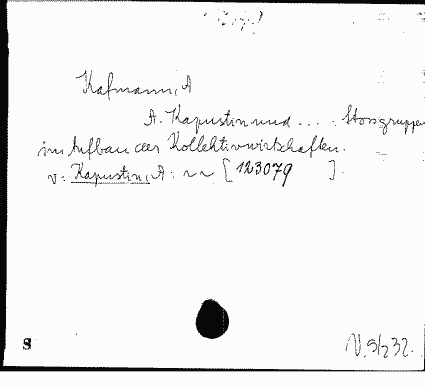 Kafmann, A
A. Kapustin und .... : Stossgruppen
im Aufbau der Kollektivwirtschaften.
v: Kapustin, A: ~~ [123079 ].
S